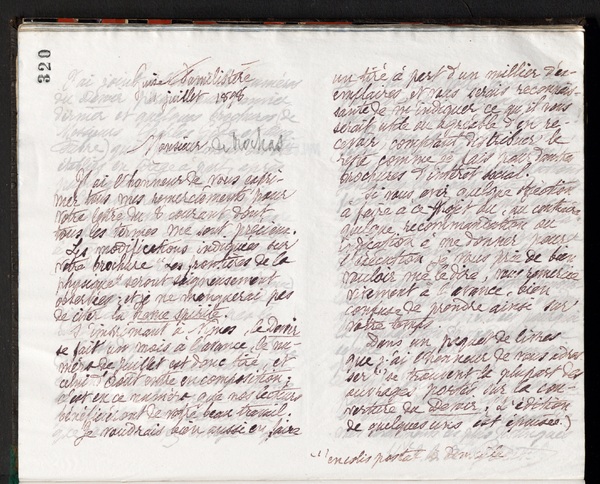 320
Guise Familistère
juillet 1898
Monsieur de Rochas
J'ai l'honneur de vous expri-
mer tous mes remerciements pour
votre lettre du 6 courant dont
tous les termes me sont précieux.
Les modifications indiquées sur
votre brochure "Les frontières de la
physique" seront soigneusement
observées; et je ne manquerai pas
de citer la Revue Spirite.
S'imprimant à Nîmes, le Devoir
se fait un mois à l'avance, le nu-
méro de juillet est donc tiré, et
celui d'Août entre en composition;
c'est en ce numéro que nos lecteurs
bénéficieront de votre beau travail.
Je voudrais bien aussi en faire
un tiré à part d'un millier d'ex-
emplaires et vous serais reconnais-
sante de m'indiquer ce qu'il vous
serait utile ou agréable d'en re-
cevoir, comptant distribuer le
reste comme je fais pour d'autres
brochures d'intérêt social.
Si vous avez quelque objection
à faire à ce sujet ou, au contraire
quelque recommandation ou
indication à me donner pour
l'exécution je vous prie de bien
vouloir me le dire, vous remerciant
vivement à l'avance, bien
confuse de prendre ainsi sur
votre temps.
Dans un paquet de livres
que j'ai l'honneur de vous adres-
ser (1) se trouvent la plupart des
ouvrages portés sur la cou-
verture du Devoir, (l'édition
de quelques uns est épuisée.)
(1) en colis postal à domicile